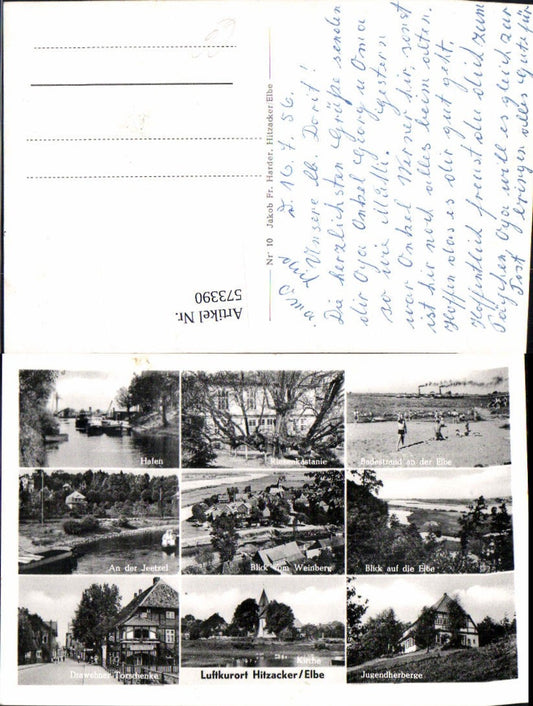 Z. 16. 7. 56.
Unsere lb. Dorit!
Die herzlichsten Grüße senden
dir Opa Onkel Georg u Oma
so wie Mutti. Gestern
war Onkel Werner hir, sonst
ist hir noch alles beim alten.
Hoffen das es dir gut geht,
Hoffentlich freust du dich zum
Opa will es gleich zur
Post bringen alles Gute für
Nr. 10 Jakob Fr. Harder, Hitzacker/Elbe
Artikel Nr.
573390
Hafen
Riesenkastanie
Badestrand an der Elbe
An der Jeetzel
Blick vom Weinberg
Blick auf die Elbe
Drawehner-Torschenke
Kirche
Jugendherberge
Luftkurort Hitzacker/Elbe